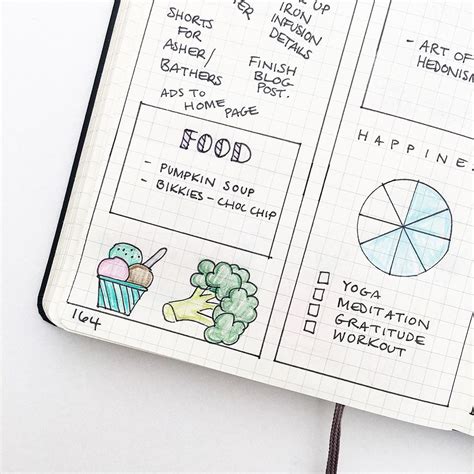 SHORTS
FOR
ASHER/
BATHERS
ADS TO
HOME
PAGE
UP
IRON
INFUSION
DETAILS
FINISH
BLOG
POST.
FOOD
- PUMPKIN SOUP
- BIKKIES - CHOC CHIP
164
- ART OF
HEDONISM
HAPPINE
YOGA
MEDITATION
GRATITUDE
WORKOUT